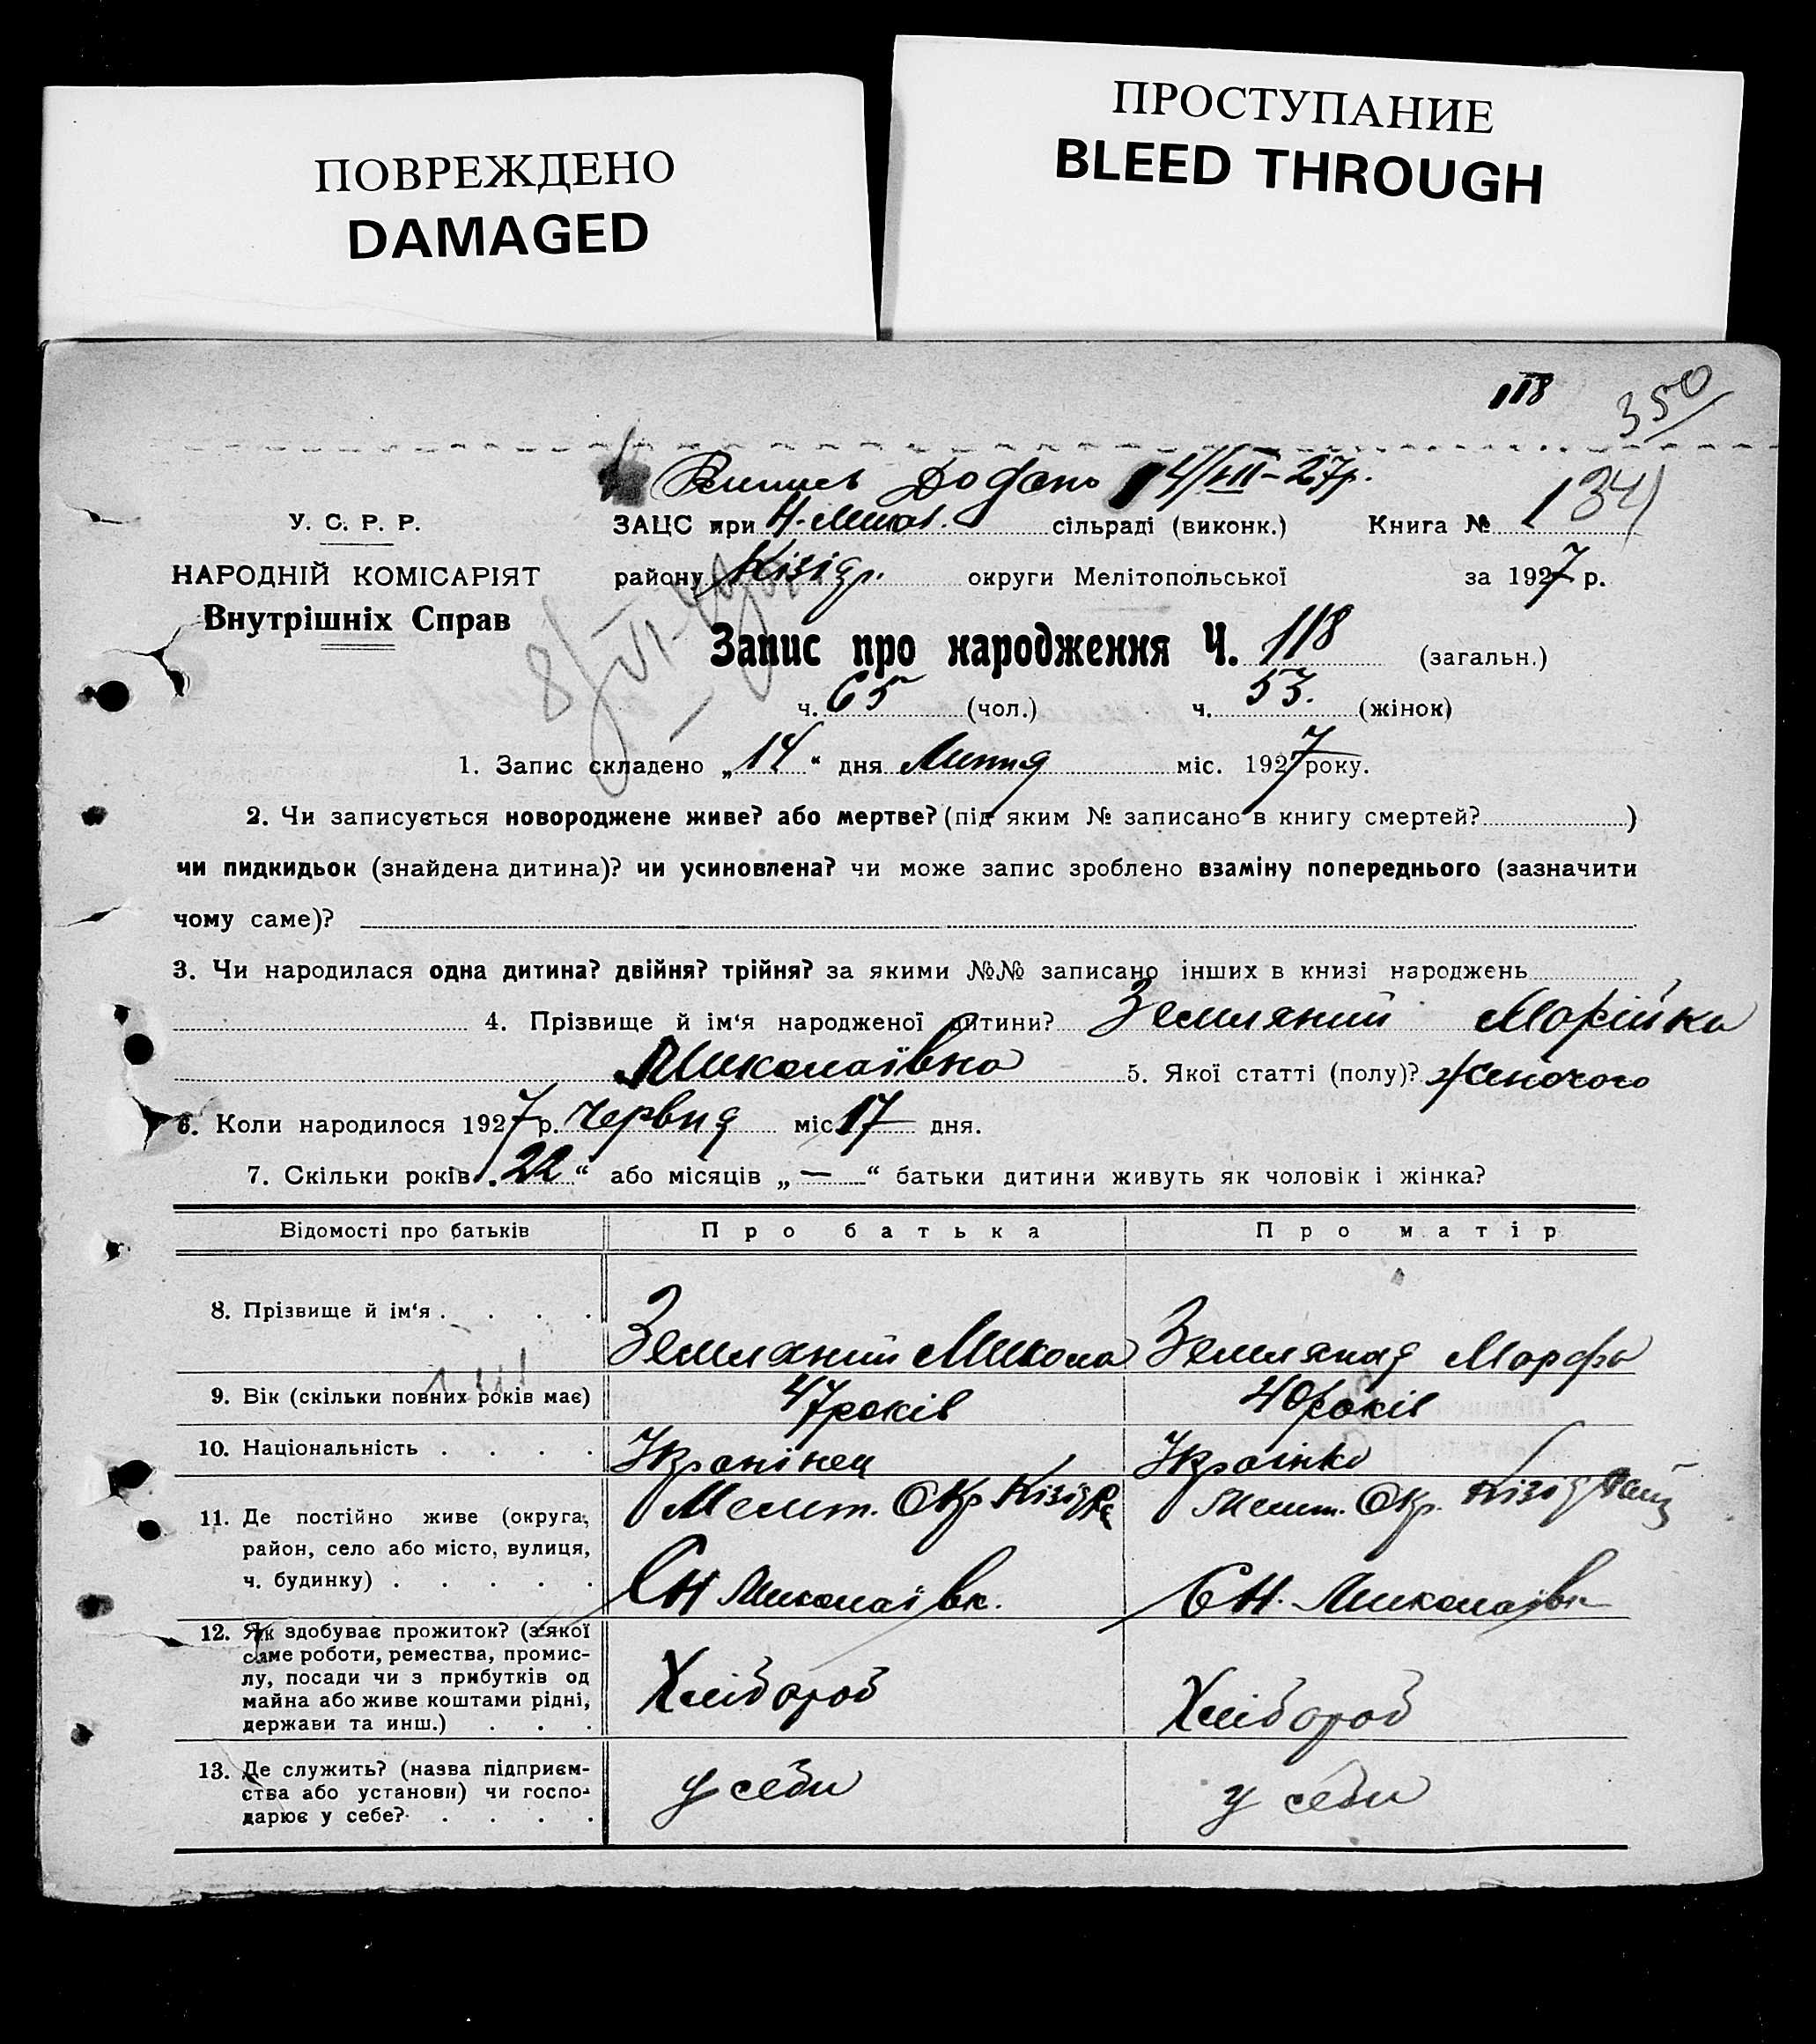 ПОВРЕЖДЕНО
DAMAGED
ПРОСТУПАНИЕ
BLEED THROUGH
118
350
Выпись додано 14/VII-27р.
У. С. Р. Р.
НАРОДНІЙ КОМІСАРІЯТ
Внутрішніх Справ
ЗАЦС при Н-Микол. сільраді (виконк.) Книга № 1 341
району Кізіяр. округи Мелітопольської за 1927 р.
Запис про народження Ч. 118 (загальн.)
ч. 65 (чол.) ч. 53. (жінок)
1. Запис складено „14“ дня Липня міс. 1927 року.
2. Чи записується новороджене живе? або мертве? (під яким № записано в книгу смертей? )
чи пидкидьок (знайдена дитина)? чи усиновлена? чи може запис зроблено взаміну попереднього (зазначити
чому саме)?
3. Чи народилася одна дитина? двійня? трійня? за якими №№ записано інших в книзі народжень
4. Прізвище й ім‘я народженої дитини? Земляний Марійка
Миколаївна 5. Якої статті (полу)? жіночого
6. Коли народилося 1927 р. червня міс 17 дня.
7. Скільки років „22“ або місяців „—“ батьки дитини живуть як чоловік і жінка?
Відомості про батьків Про батька Про матір
8. Прізвище й ім‘я . . . . Земляний Микола Земляная Марфа
9. Вік (скільки повних років має) 47 років 40 років
10. Національність . . . . Украінец Украінка
11. Де постійно живе (округа, Мелит. Окр. Кізіяр Мелит. Окр. Кізіяр
район, село або місто, вулиця,
ч. будинку) . . . . . СН Миколаївк. СН. Миколаївк
12. Як здобуває прожиток? (з якої
саме роботи, ремества, промис-
лу, посади чи з прибутків од Хлібороб Хлібороб
майна або живе коштами рідні,
держави та инш.) . . .
13. Де служить? (назва підприєм-
ства або установи) чи госпо- у себи у себи
дарює у себе? . . . .